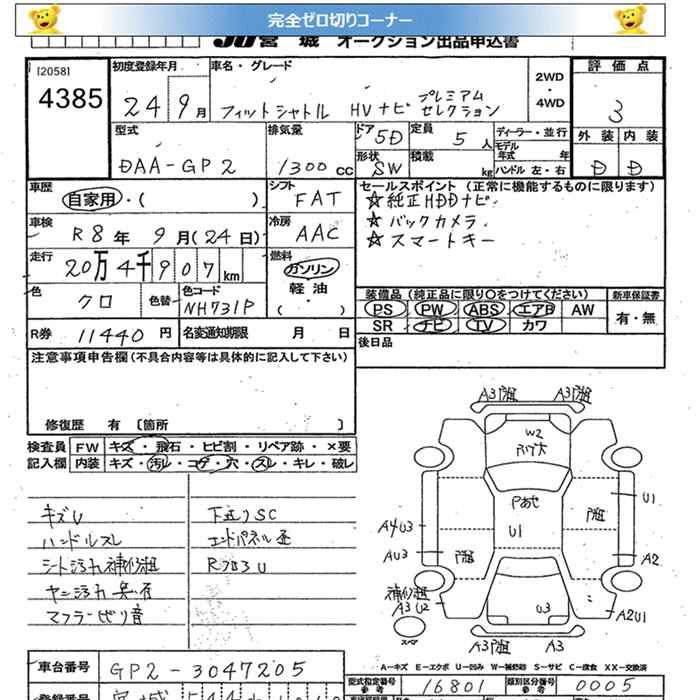 完全ゼロ切りコーナー
JU宮城 オークション出品申込書
[2058]
4385
初度登録年月
24 9月
車名・グレード
フィットシャトル HVナビ プレミアムセレクション
2WD
・
4WD
評価点
3
外装 内装
D D
型式
DAA-GP2
排気量
1300cc
ドア 5D
定員 5人
ディーラー・並行
モデル年式 年
形状 SW
積載 kg
ハンドル 左・右
車歴
自家用・( )
シフト
FAT
セールスポイント (正常に機能するものに限ります)
☆純正HDDナビ
☆バックカメラ
☆スマートキー
車検
R8年 9月(24日)
冷房
AAC
走行
20万4千907km
燃料
ガソリン
軽油
( )
色
クロ
色替
色コード
NH731P
装備品(純正品に限り○をつけてください)
PS PW ABS エアB AW
SR ナビ TV カワ
新車保証書
有・無
R券 11440円
名変通知期限 月 日
後日品
注意事項申告欄(不具合内容等は具体的に記入して下さい)
修復歴 有 [箇所 ]
検査員 FW キズ・飛石・ヒビ割・リペア跡・×要
記入欄 内装 キズ・汚レ・コゲ・穴・スレ・キレ・破レ
キズU
ハンドルスレ
シート汚れ補修粗
マフラービリ音
下廻りSC
エンドパネル歪
A3
A3
W2
U1
A4U3
AU3
U1
A2
A3U2
U3
A2U1
A3
A3
スペア
A-キズ E-エクボ U-凹み W-補修跡 S-サビ C-腐食 XX-交換済
車台番号
GP2-3047205
型式指定番号
参考
16801
類別区分番号
参考
0005
登録番号
宮城